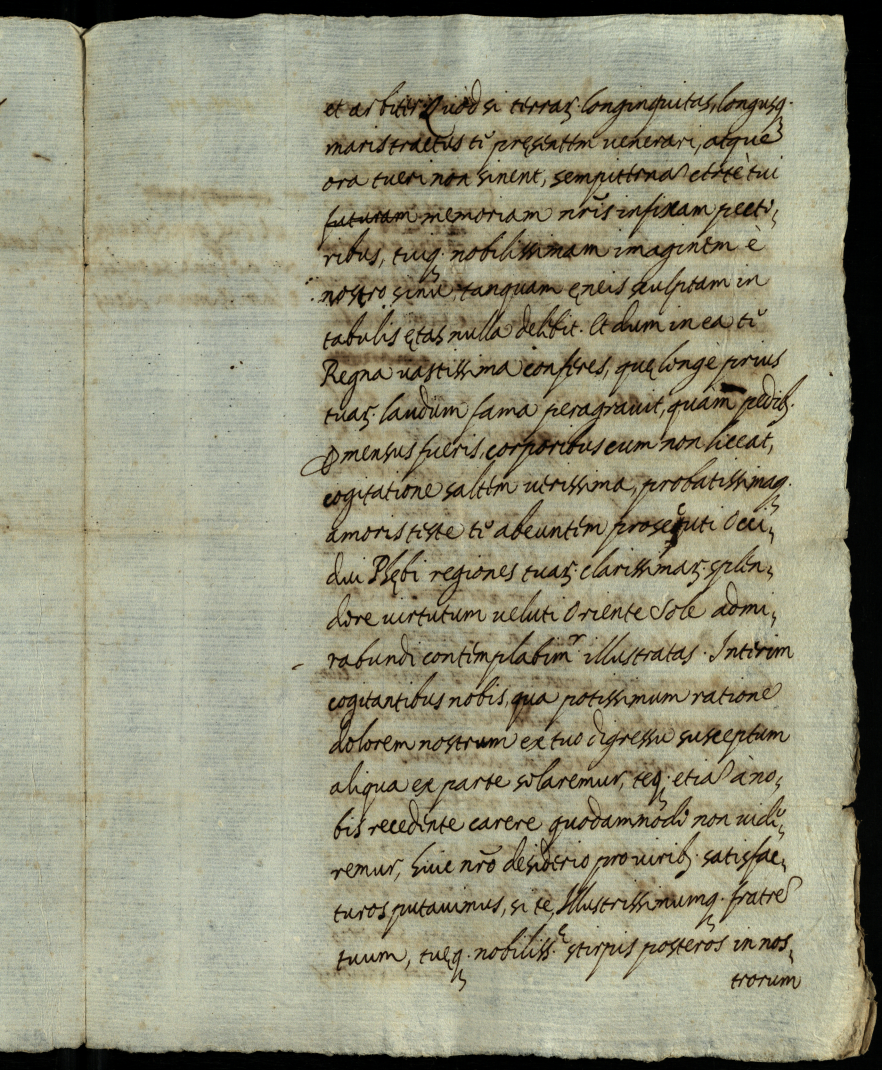 et arbiter. Quòd si terraꝝ longinquitas, longusq.
maris tractus tū pręsentem uenerari, atque
ora tueri non sinent, sempiternā certè tui
futuram memoriam nr̄is infixam pecto-
ribus, tuiq. nobilissimam imaginem è
nostro sinu, tanquam ęneis sculptam in
tabulis ętas nulla delebit. Et dum in ea tū
Regna uastissima conferes, quę longè prius
tuaꝝ laudum fama peragrauit, quàm pedib.
emensus fueris, corporibus cum non liceat,
cogitatione saltem uerissima, probatissimaq.
amoris teste tū abeuntem prosequuti Occi-
dui Phębi regiones tuaꝝ clarissimaꝝ splen-
dore uirtutum ueluti Oriente Sole admi-
rabundi contemplabimr. illustratas. Interim
cogitantibus nobis, qua potissimum ratione
dolorem nostrum ex tuo digressu susceptum
aliqua ex parte solaremur, teq. etiā à no-
bis recedente carere quodammodo non uide-
remur, huic nr̄o desiderio pro uirib. satisfac-
turos putauimus, si te, Illustrissimumq. fratrē
tuum, tuęq. nobiliss.ę stirpis posteros in nos-
trorum